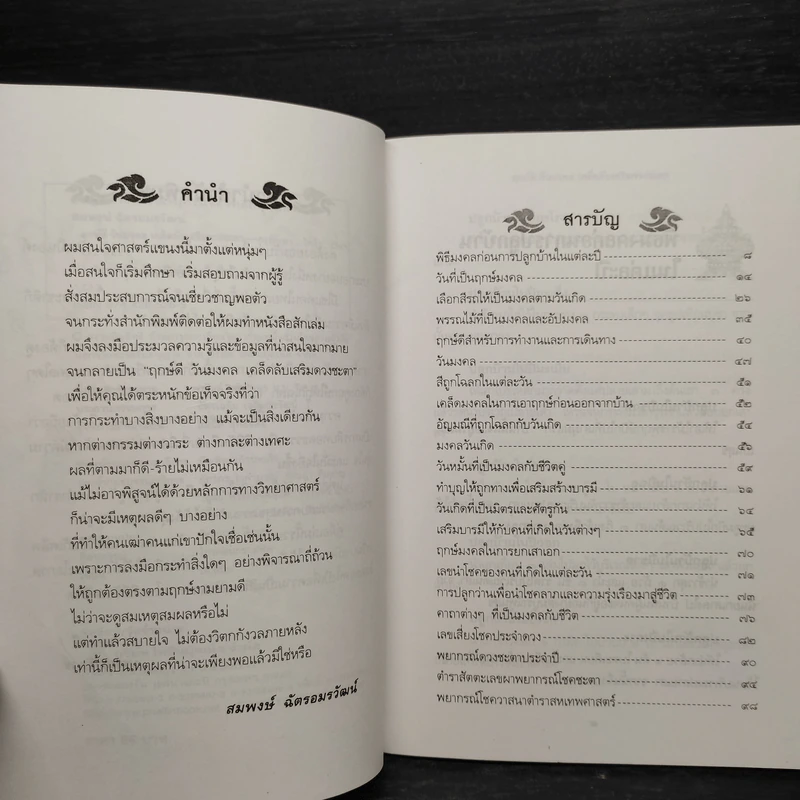 คำนำ
ผมสนใจศาสตร์แขนงนี้มาตั้งแต่หนุ่มๆ
เมื่อสนใจก็เริ่มศึกษา เริ่มสอบถามจากผู้รู้
สั่งสมประสบการณ์จนเชี่ยวชาญพอตัว
จนกระทั่งสำนักพิมพ์ติดต่อให้ผมทำหนังสือสักเล่ม
ผมจึงลงมือประมวลความรู้และข้อมูลที่น่าสนใจมากมาย
จนกลายเป็น "ฤกษ์ดี วันมงคล เคล็ดลับเสริมดวงชะตา"
เพื่อให้คุณได้ตระหนักข้อเท็จจริงที่ว่า
การกระทำบางสิ่งบางอย่าง แม้จะเป็นสิ่งเดียวกัน
หากต่างกรรมต่างวาระ ต่างกาละต่างเทศะ
ผลที่ตามมาก็ดี-ร้ายไม่เหมือนกัน
แม้ไม่อาจพิสูจน์ได้ด้วยหลักการทางวิทยาศาสตร์
ก็น่าจะมีเหตุผลดีๆ บางอย่าง
ที่ทำให้คนเฒ่าคนแก่เขาปักใจเชื่อเช่นนั้น
เพราะการลงมือกระทำสิ่งใดๆ อย่างพิจารณาถี่ถ้วน
ให้ถูกต้องตรงตามฤกษ์งามยามดี
ไม่ว่าจะดูสมเหตุสมผลหรือไม่
แต่ทำแล้วสบายใจ ไม่ต้องวิตกกังวลภายหลัง
เท่านี้ก็เป็นเหตุผลที่น่าจะเพียงพอแล้วมิใช่หรือ
สมพงษ์ ฉัตรอมรวัฒน์
สารบัญ
พิธีมงคลก่อนการปลูกบ้านในแต่ละปี ๘
วันที่เป็นฤกษ์มงคล ๑๔
เลือกสีรถให้เป็นมงคลตามวันเกิด ๒๖
พรรณไม้ที่เป็นมงคลและอัปมงคล ๓๕
ฤกษ์ดีสำหรับการทำงานและการเดินทาง ๔๐
วันมงคล ๔๗
สีถูกโฉลกในแต่ละวัน ๕๑
เคล็ดมงคลในการเอาฤกษ์ก่อนออกจากบ้าน ๕๒
อัญมณีที่ถูกโฉลกกับวันเกิด ๕๔
มงคลวันเกิด ๕๖
วันหมั้นที่เป็นมงคลกับชีวิตคู่ ๕๙
ทำบุญให้ถูกทางเพื่อเสริมสร้างบารมี ๖๑
วันเกิดที่เป็นมิตรและศัตรูกัน ๖๔
เสริมบารมีให้กับคนที่เกิดในวันต่างๆ ๖๕
ฤกษ์มงคลในการยกเสาเอก ๗๐
เลขนำโชคของคนที่เกิดในแต่ละวัน ๗๑
การปลูกว่านเพื่อนำโชคลาภและความรุ่งเรืองมาสู่ชีวิต ๗๓
คาถาต่างๆ ที่เป็นมงคลกับชีวิต ๗๖
เลขเสี่ยงโชคประจำดวง ๘๒
พยากรณ์ดวงชะตาประจำปี ๙๐
ตำราสัตตะเลขผาพยากรณ์โชคชะตา ๙๔
พยากรณ์โชควาสนาตำราสหเทพศาสตร์ ๙๘